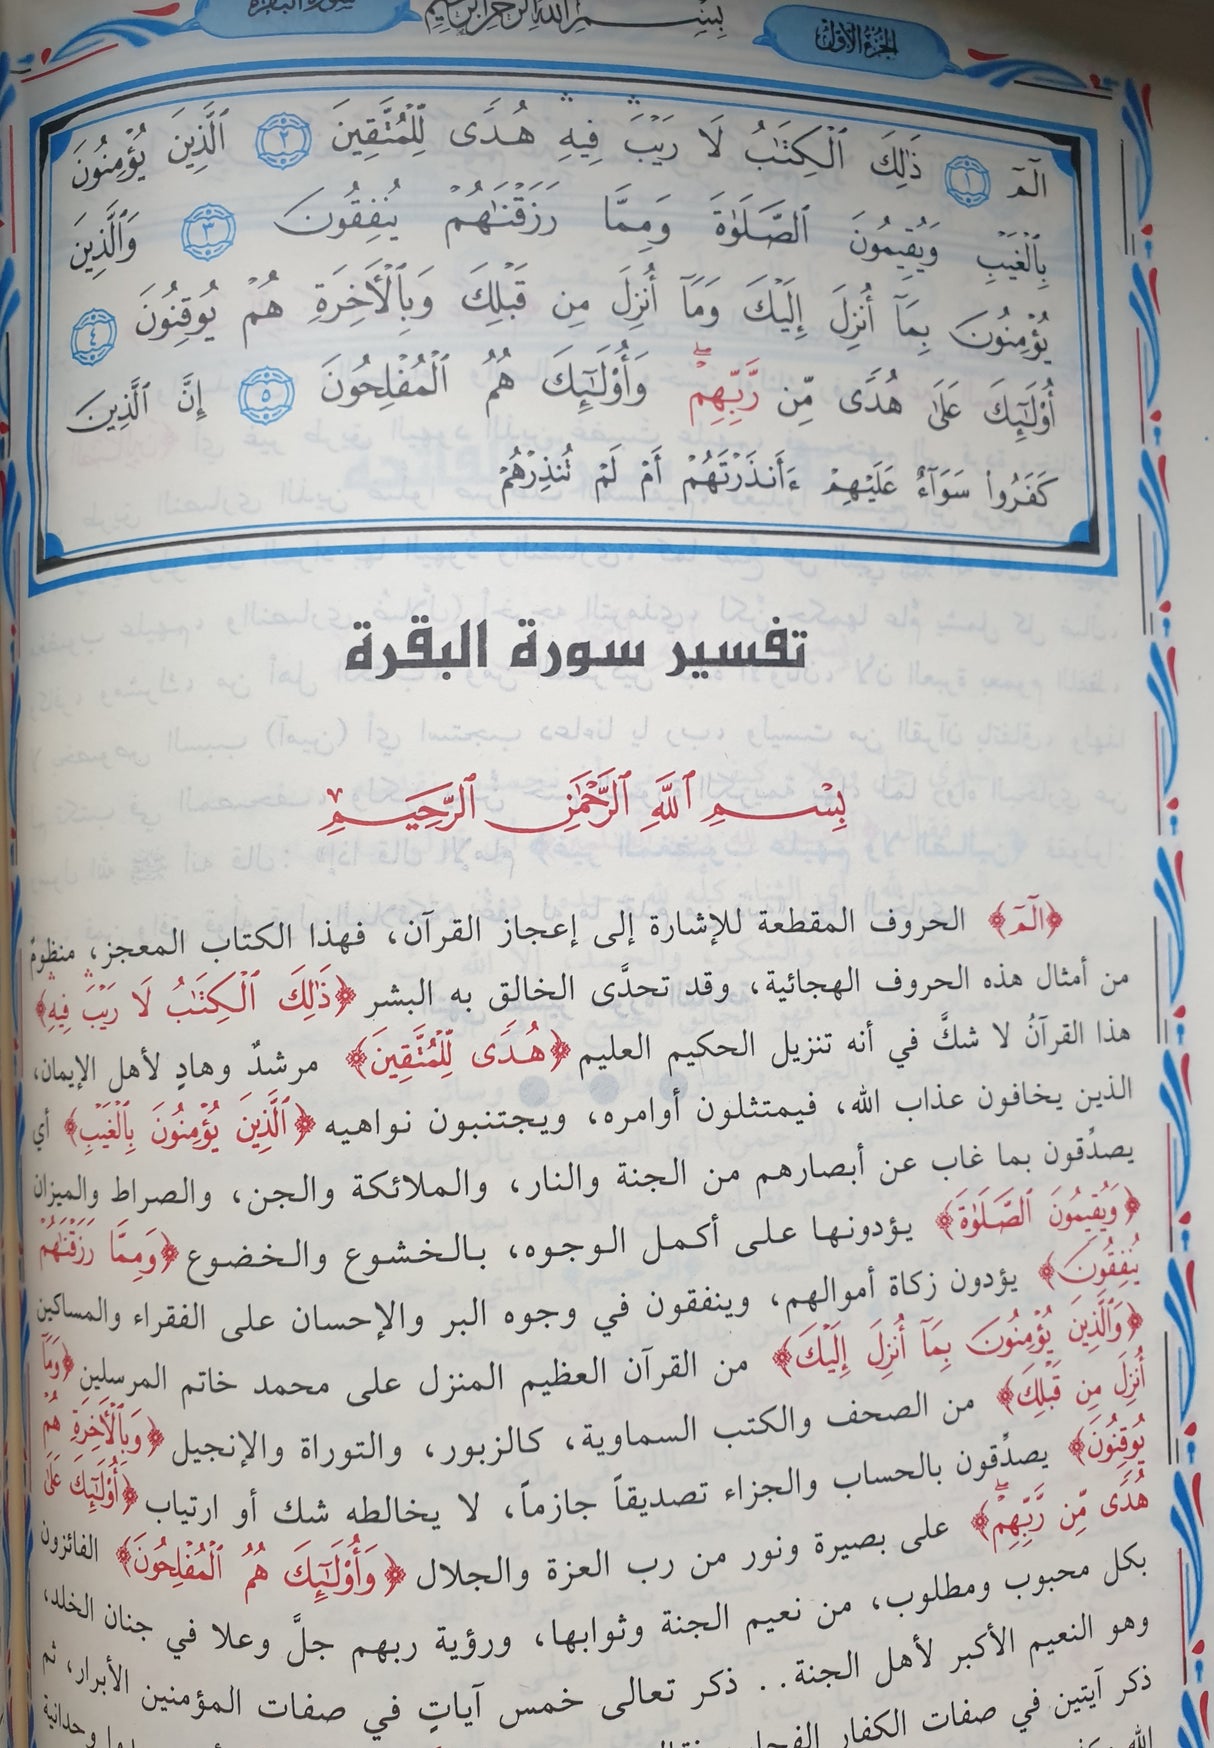 الجزء الأول
بِسْمِ اللَّهِ الرَّحْمَنِ الرَّحِيمِ
سورة البقرة
الٓمٓ ١ ذَٰلِكَ ٱلْكِتَٰبُ لَا رَيْبَ ۛ فِيهِ ۛ هُدًى لِّلْمُتَّقِينَ ٢ ٱلَّذِينَ يُؤْمِنُونَ
بِٱلْغَيْبِ وَيُقِيمُونَ ٱلصَّلَوٰةَ وَمِمَّا رَزَقْنَٰهُمْ يُنفِقُونَ ٣ وَٱلَّذِينَ
يُؤْمِنُونَ بِمَآ أُنزِلَ إِلَيْكَ وَمَآ أُنزِلَ مِن قَبْلِكَ وَبِٱلْأَخِرَةِ هُمْ يُوقِنُونَ ٤
أُو۟لَٰٓئِكَ عَلَىٰ هُدًى مِّن رَّبِّهِمْ ۖ وَأُو۟لَٰٓئِكَ هُمُ ٱلْمُفْلِحُونَ ٥ إِنَّ ٱلَّذِينَ
كَفَرُوا۟ سَوَآءٌ عَلَيْهِمْ ءَأَنذَرْتَهُمْ أَمْ لَمْ تُنذِرْهُمْ
تفسير سورة البقرة
بِسْمِ ٱللَّهِ ٱلرَّحْمَٰنِ ٱلرَّحِيمِ
﴿الٓمٓ﴾ الحروف المقطعة للإشارة إلى إعجاز القرآن، فهذا الكتاب المعجز، منظومٌ
من أمثال هذه الحروف الهجائية، وقد تحدَّى الخالق به البشر ﴿ذَٰلِكَ ٱلْكِتَٰبُ لَا رَيْبَ ۛ فِيهِ ۛ﴾
هذا القرآنُ لا شكَّ في أنه تنزيل الحكيم العليم ﴿هُدًى لِّلْمُتَّقِينَ﴾ مرشدٌ وهادٍ لأهل الإيمان،
الذين يخافون عذاب الله، فيمتثلون أوامره، ويجتنبون نواهيه ﴿ٱلَّذِينَ يُؤْمِنُونَ بِٱلْغَيْبِ﴾ أي
يصدِّقون بما غاب عن أبصارهم من الجنة والنار، والملائكة والجن، والصراط والميزان
﴿وَيُقِيمُونَ ٱلصَّلَوٰةَ﴾ يؤدونها على أكمل الوجوه، بالخشوع والخضوع ﴿وَمِمَّا رَزَقْنَٰهُمْ
يُنفِقُونَ﴾ يؤدون زكاة أموالهم، وينفقون في وجوه البر والإحسان على الفقراء والمساكين
﴿وَٱلَّذِينَ يُؤْمِنُونَ بِمَآ أُنزِلَ إِلَيْكَ﴾ من القرآن العظيم المنزل على محمد خاتم المرسلين ﴿وَمَآ
أُنزِلَ مِن قَبْلِكَ﴾ من الصحف والكتب السماوية، كالزبور، والتوراة والإنجيل ﴿وَبِٱلْأَخِرَةِ هُمْ
يُوقِنُونَ﴾ يصدِّقون بالحساب والجزاء تصديقاً جازماً، لا يخالطه شك أو ارتياب ﴿أُو۟لَٰٓئِكَ عَلَىٰ
هُدًى مِّن رَّبِّهِمْ ۖ﴾ على بصيرة ونور من رب العزة والجلال ﴿وَأُو۟لَٰٓئِكَ هُمُ ٱلْمُفْلِحُونَ﴾ الفائزون
بكل محبوب ومطلوب، من نعيم الجنة وثوابها، ورؤية ربهم جلَّ وعلا في جنان الخلد،
وهو النعيم الأكبر لأهل الجنة.. ذكر تعالى خمس آياتٍ في صفات المؤمنين الأبرار، ثم
ذكر آيتين في صفات الكفار
وحدانية